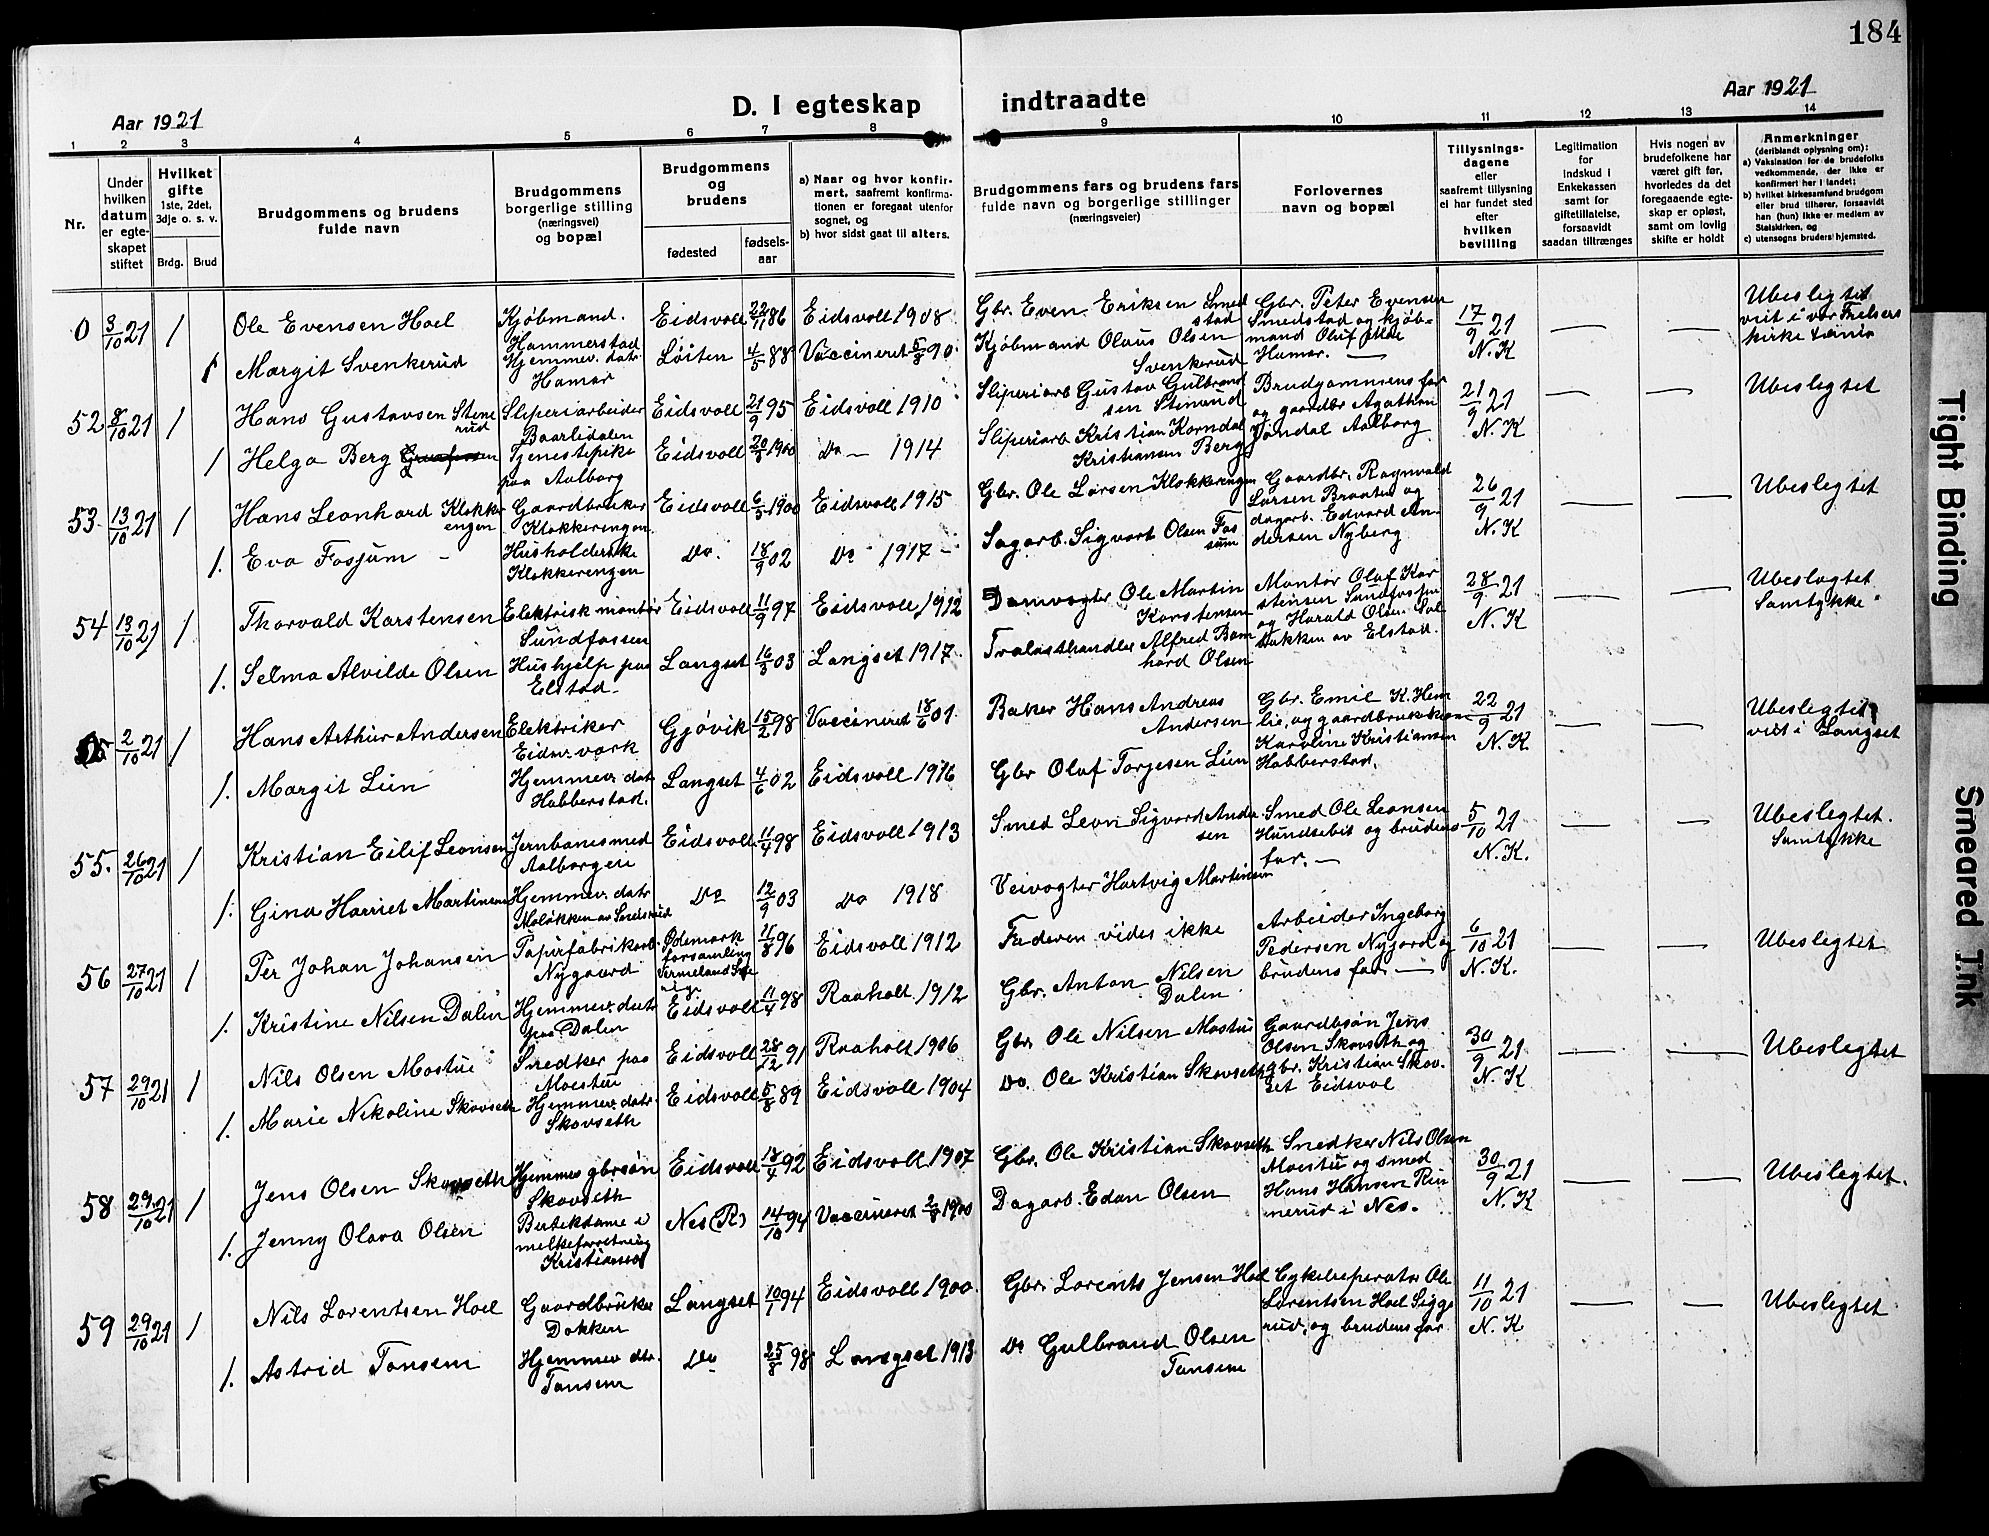 184
Aar 1921
D. I egteskap indtraadte
Aar 1921
1 2 3 4 5 6 7 8 9 10 11 12 13 14
Nr.
Under hvilken datum er egteskapet stiftet
Hvilket gifte 1ste, 2det, 3dje o. s. v.
Brdg. Brud
Brudgommens og brudens fulde navn
Brudgommens borgerlige stilling (næringsvei) og bopæl
Brudgommens og brudens
fødested
fødsels-aar
a) Naar og hvor konfirmert, saafremt konfirmationen er foregaat utenfor sognet, og
b) hvor sidst gaat til alters.
Brudgommens fars og brudens fars fulde navn og borgerlige stillinger (næringsveier)
Forlovernes navn og bopæl
Tillysningsdagene eller saafremt tillysning ei har fundet sted efter hvilken bevilling
Legitimation for indskud i Enkekassen samt for giftetillatelse, forsaavidt saadan tiltrænges
Hvis nogen av brudefolkene har været gift før, hvorledes da det foregaaende egteskap er opløst, samt om lovlig skifte er holdt
Anmerkninger (deriblandt oplysning om):
a) Vaksination for de brudefolks vedkommende, der ikke er konfirmert her i landet;
b) hvilket kirkesamfund brudgom eller brud tilhører, forsaavidt han (hun) ikke er medlem av Statskirken, og
c) utensogns bruders hjemsted.
0 3/10 21 1 Ole Evensen Hoel Kjøbmand. Hammerstad Eidsvoll 22/11 86 Eidsvoll 1908 Gbr. Even Eriksen Smedstad Gbr. Peter Evensen Smedstad og kjøbmand Oluf Hamar. — 17/9 21 N. K — — Ubeslegtet viet i vor Frelsers kirke
1 Margit Svenkerud Hjemmev. datr Hamar Løiten 4/5 88 Vaccineret 5/8 90. Kjøbmand Olaus Olsen Svenkerud
52 8/10 21 1 Hans Gustavsen Stenerud Sliperiarbeider Baarlidalen Eidsvoll 21/9 95 Eidsvoll 1910 Sliperiarb Gustav Gulbrandsen Stenerud Brudgommens far og gaardbr Agathon Jøndal Aalborg 21/9 21 N. K — — Ubeslegtet
1 Helga Berg Tjenestepike paa Aalborg Eidsvoll 20/3 1900 Do — 1914 Sliperiarb Kristian Korndal Kristiansen Berg
53 13/10 21 1 Hans Leonhard Klokkerengen Gaardbruker Klokkerengen Eidsvoll 6/3 1900 Eidsvoll 1915 Gbr. Ole Larsen Klokkerengen Gaardbr. Ragnvald Larsen Braaten og dagarb. Edvard Andersen Nyberg 26/9 21 N. K — — Ubeslegtet
1. Eva Fossum - Husholderske Klokkerengen Do. 18/9 02 Do 1917 - Sagarb. Sigvart Olsen Fossum
54 13/10 21 1 Thorvald Karstensen Elektrisk montør Sundfossen Eidsvoll 11/9 97 Eidsvoll 1912 Damvogter Ole Martin Karstensen Montør Olaf Karstensen Sundfossen og Harald Olsen Solbakken av Elstad. 28/9 21 N. K — — Ubeslegtet. Samtykke
1. Selma Alvilde Olsen Hushjelp paa Elstad Langset 16/3 03 Langset 1917. Trælasthandler Alfred Bernhard Olsen
2/10 21 1 Hans Arthur Andersen Elektriker Eidsv. værk Gjøvik 15/2 98 Vaccineret 18/6 01 Baker Hans Andreas Andersen Gbr. Emil K. Hemlie, og gaardbrukerske Karoline Kristiansen Habberstad. 22/9 21 N. K — — Ubeslegtet viet i Langset
1. Margit Lien Hjemmev. datr Habberstad. Langset 4/6 02 Eidsvoll 1916 Gbr Olaf Torjesen Lien
55. 26/10 21 1 Kristian Eilif Leonsen Jernbanesmed Aalborgen Eidsvoll 11/4 98 Eidsvoll 1913 Smed Leon Sigvard Andersen Smed Ole Leonsen Hundsebit og brudens far. — 5/10 21 N. K. — — Ubeslegtet. Samtykke
1. Gina Harriet Martinsen Hjemmev. datr Moløkken av Do 12/9 03 Do 1918 Veivogter Hartvig Martinsen
56 27/10 21 1 Per Johan Johansen Papirfabrikarb Nygaard Ødemark forsamling Vermeland Sverige 11/8 96 Eidsvoll 1912 Faderen vides ikke Arbeider Ingeborg Pedersen Nyjord og brudens far. — 6/10 21 N. K. — — Ubeslegtet
1. Kristine Nilsen Dalen Hjemmev. datr paa Dalen Eidsvoll 11/4 98 Raaholt 1912 Gbr. Anton Nilsen Dalen
57 29/10 21 1 Nils Olsen Mostue Snedker paa Moestue Eidsvoll 28/12 91 Raaholt 1906 Gbr. Ole Nilsen Mostue Gaardbsøn Jens Olsen Skovseth og gbr. Kristian Skovset Eidsvol 30/9 21 N. K — — Ubeslegtet
1. Marie Nikoline Skovseth Hjemmev. datr Skovseth Eidsvoll 5/8 89 Eidsvoll 1904 Do. Ole Kristian Skovseth
58 29/10 21 1 Jens Olsen Skovseth Hjemmev gbrsøn Skovseth Eidsvoll 18/4 92 Eidsvoll 1907 Gbr. Ole Kristian Skovseth Snedker Nils Olsen Moestue og smed Hans Hansen Rinnerud i Nes. 30/9 21 N. K — — Ubeslegtet.
1. Jenny Olava Olsen i melkeforretning Kristiania Nes (R) 14/10 94 Vaccineret 2/8 1900 Dagarb. Edan Olsen
59 29/10 21 1 Nils Lorentsen Hoel Gaardbruker Dokken Langset 10/1 94 Eidsvoll 1900. Gbr. Lorents Jensen Hoel Cykelreperatør Ole Lorentsen Hoel Siggerud, og brudens far 11/10 21 N. K — — Ubeslegtet
1. Astrid Tønsem Hjemmev dtr. Tønsem Do 25/8 98 Langset 1913 Do Gulbrand Olsen Tønsem
Tight Binding
Smeared Ink